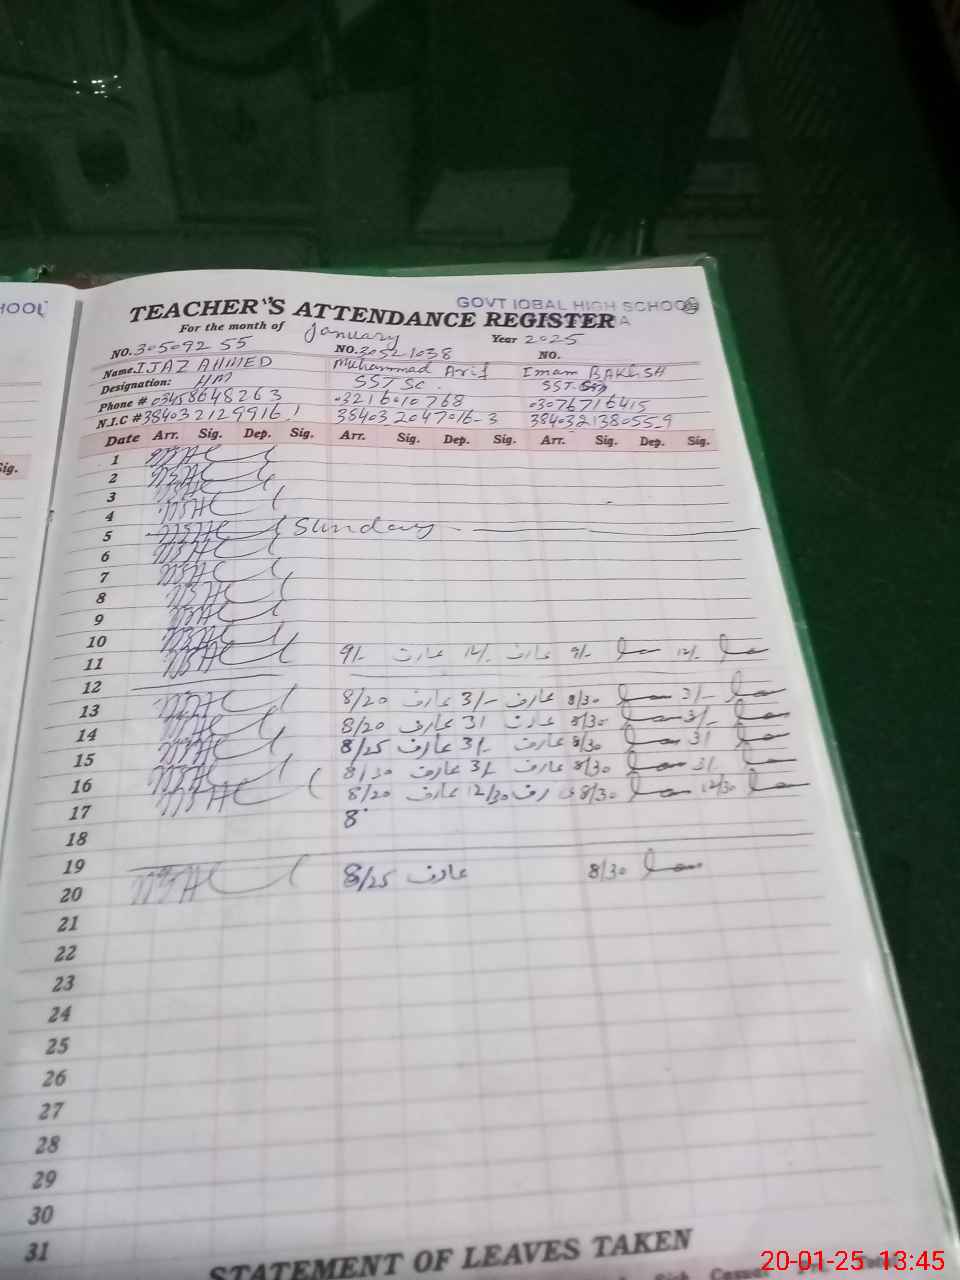 HOOL
GOVT IQBAL HIGH SCHOOL
TEACHER'S ATTENDANCE REGISTER
For the month of January Year 2025
NO. 30509255 NO. 30521038 NO.
Name. IJAZ AHMED Muhammad Arif Imam BAKHSH
Designation: HM SST Sc. SST.
Phone # 03458648263 03216010768 03076716415
N.I.C # 384032129916.1 384032047016-3 384032138055-9
Date Arr. Sig. Dep. Sig. Arr. Sig. Dep. Sig. Arr. Sig. Dep. Sig.
Sig.
1
2
3
4
5 Sunday
6
7
8
9
10
11 9/- عارف 12/- عارف 9/- 12/-
12
13 8/20 عارف 3/- عارف 8/30 3/-
14 8/20 عارف 31 عارف 8/30 3/-
15 8/25 عارف 3/- عارف 8/30 31
16 8/30 عارف 3/- عارف 8/30 3/-
17 8/20 عارف 12/30 عارف 8/30 12/30
18 8
19
20 8/25 عارف 8/30
21
22
23
24
25
26
27
28
29
30
31
STATEMENT OF LEAVES TAKEN
20-01-25 13:45